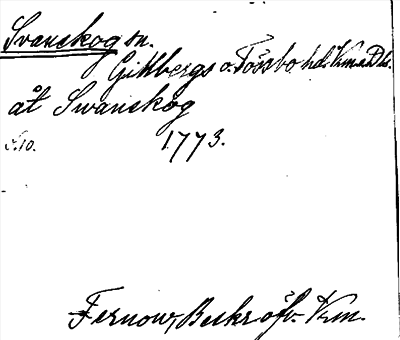 Svanskog sn.
Gillbergs o. Tössbo hd. Vrm o Dls.
åt Swanskog
S. 10. 1773.
Fernow, Beskr. öfv. Vrm.